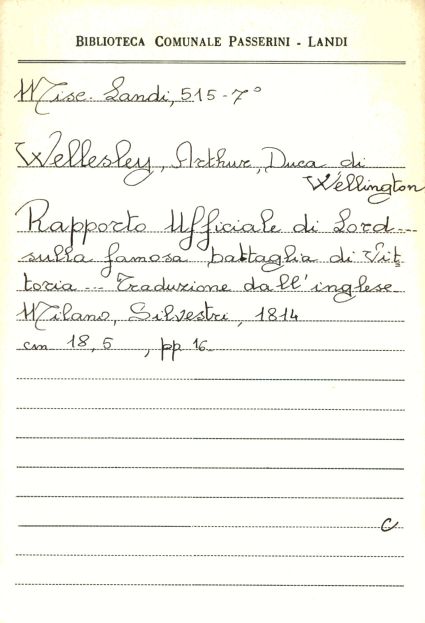 BIBLIOTECA COMUNALE PASSERINI - LANDI
Misc. Landi, 515-7°
Wellesley, Arthur, Duca di
Wellington
Rapporto Ufficiale di Lord ...
sulla famosa battaglia di Vit
toria ... Traduzione dall'inglese
Milano, Silvestri, 1814
cm 18,5 , pp 16
C